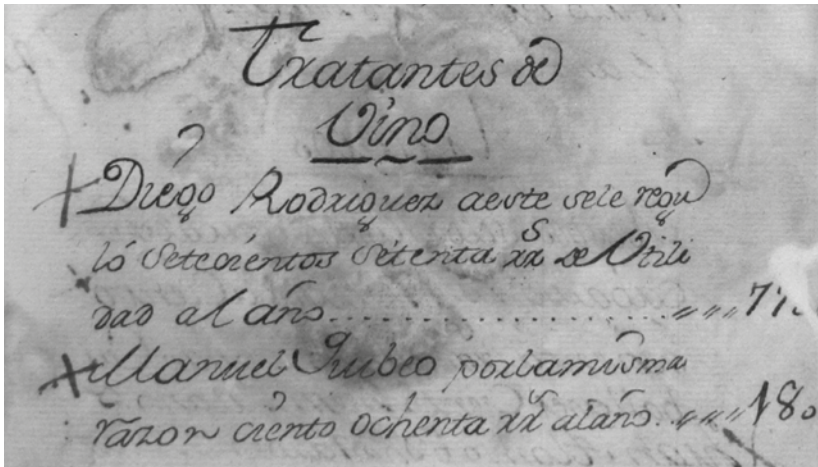 Tratantes de
Vino
Diego Rodriguez a este sele regu
ló setecientos setenta rr.s de Utili
dad al año.............. 77
Manuel Rubeo por la misma
razon ciento ochenta rr.s al año. 180